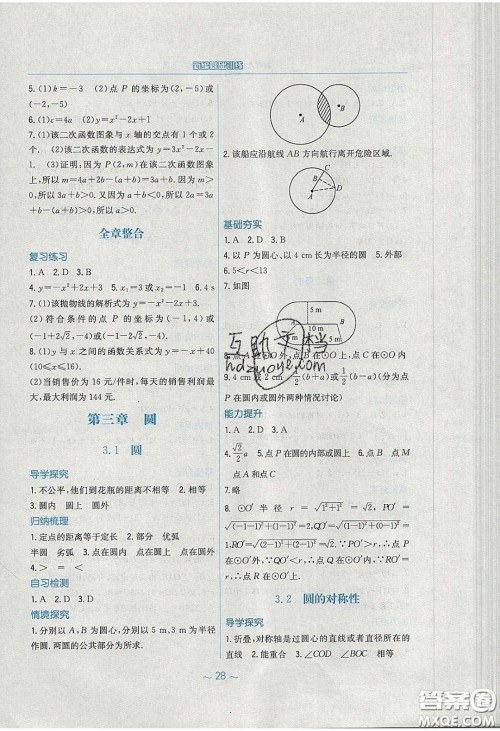 新编基础训练
5. (1)k=-3 (2)点 P 的坐标为(2,-5)或
(-2,-5)
6. (1)c=4a (2)y=x²-2x+1
7. (1)该二次函数图象与 x 轴的交点有 1 个或 2
个. (2)该二次函数的表达式为 y=3x²-2x-1.
(3)证明:因为 P(2,m)在该二次函数图象上,所
以 m=4a+2b-(a+b)=3a+b. 因为 m>
0,所以 3a+b>0. 又因为 a+b<0,所以 2a=
3a+b-(a+b)>0. 所以 a>0.
全章整合
复习练习
1. A 2. D 3. B
4. y=-x²+2x+3 5. x₁=-1,x₂=3 6. 4 s
7. (1)该抛物线的解析式为 y=-x²-2x+3.
(2)符合条件的点 P 的坐标为(-1,4)或
(-1+2√2,-4)或(-1-2√2,-4).
8. (1)y 与 x 之间的函数关系式为 y=-x+40
(10≤x≤16).
(2)当销售价为 16 元/件时,每天的销售利润最
大,最大利润为 144 元.
第三章 圆
3.1 圆
导学探究
1. 不公平,他们到花瓶的距离不相等 2. 相等
3. 圆内 圆上 圆外
归纳梳理
1. 定点的距离等于定长 2. 部分 优弧
半圆 劣弧 3. 在圆上 4. > = <
自习检测
1. A 2. A 3. D
情境探究
1. 分别以 A,B 为圆心,分别以 5 m,3 m 为半径
作圆. 两圆的公共部分为所求.
A
B
2. 该船应沿航线 AB 方向航行离开危险区域.
C
B
D
A
基础夯实
1. A 2. D 3. B
4. 以 P 为圆心、以 4 cm 长为半径的圆 5. 外部
6. 5<r<13
7. 如图
5 m
10 m
5 m
互助文档
hdzuoye.com
9. 4 cm 或 2 cm
能力提升
5. 点 P 在圆的内部或圆上 6. A
7. 略
8. ⊙O′ 半径 r=√(1²+1²)=√2, PO′=
√((-1-1)²+(1-1)²)=2, QO′=√((1-1)²+(1-1)²)=
1,RO′=√((2-1)²+(2-1)²)=√2. ∵PO′>r,∴点 P
在⊙O′外. ∵QO′<r,∴点 Q 在⊙O′内. ∵RO′=
r,∴点 R 在⊙O′上.
3.2 圆的对称性
导学探究
1. 折叠,对称轴是过圆心的直线或者直径所在的
直线 2. 能,重合 3. ∠COD
~ 28 ~
答案圈
MXQE.COM